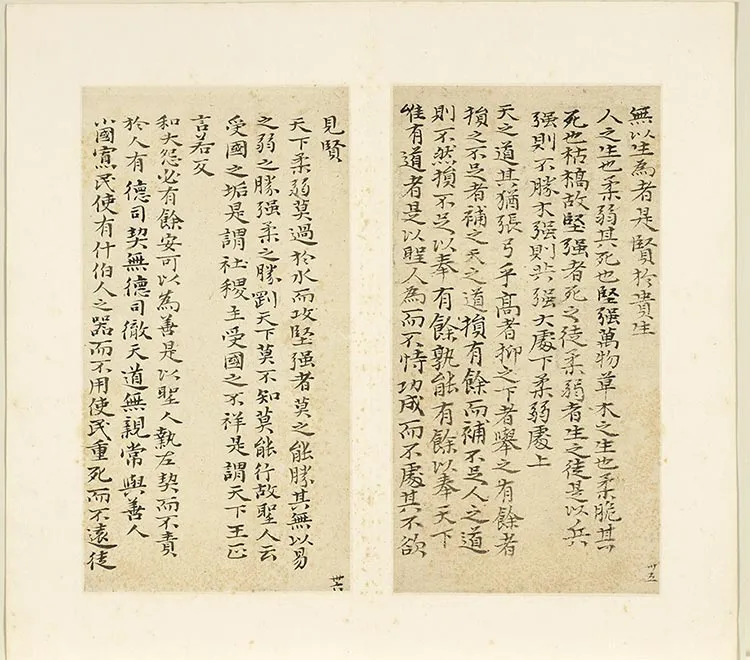 無以生為者是賢於貴生
人之生也柔弱其死也堅强萬物草木之生也柔脆其
死也枯槁故堅强者死之徒柔弱者生之徒是以兵
强則不勝木强則共强大處下柔弱處上
天之道其猶張弓乎高者抑之下者舉之有餘者
損之不足者補之天之道損有餘而補不足人之道
則不然損不足以奉有餘孰能有餘以奉天下
唯有道者是以聖人為而不恃功成而不處其不欲
卅五
見賢
天下柔弱莫過於水而攻堅强者莫之能勝其無以易
之弱之勝强柔之勝剛天下莫不知莫能行故聖人云
受國之垢是謂社稷主受國之不祥是謂天下王正
言若反
和大怨必有餘安可以為善是以聖人執左契而不責
於人有德司契無德司徹天道無親常與善人
小國寡民使有什伯人之器而不用使民重死而不遠徙
卅六